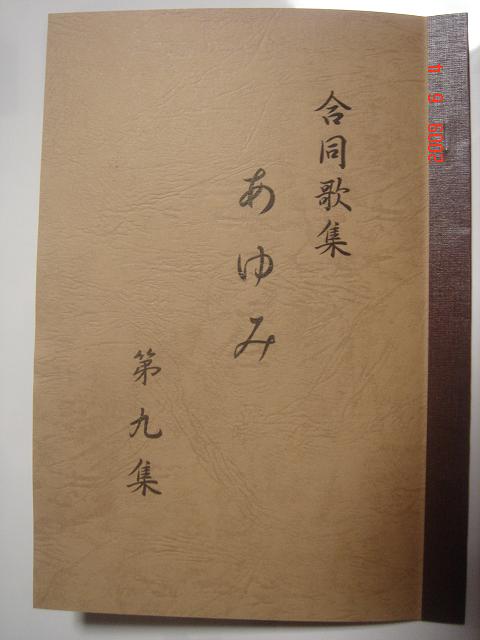 合同歌集
あゆみ
第九集
2009 9 4